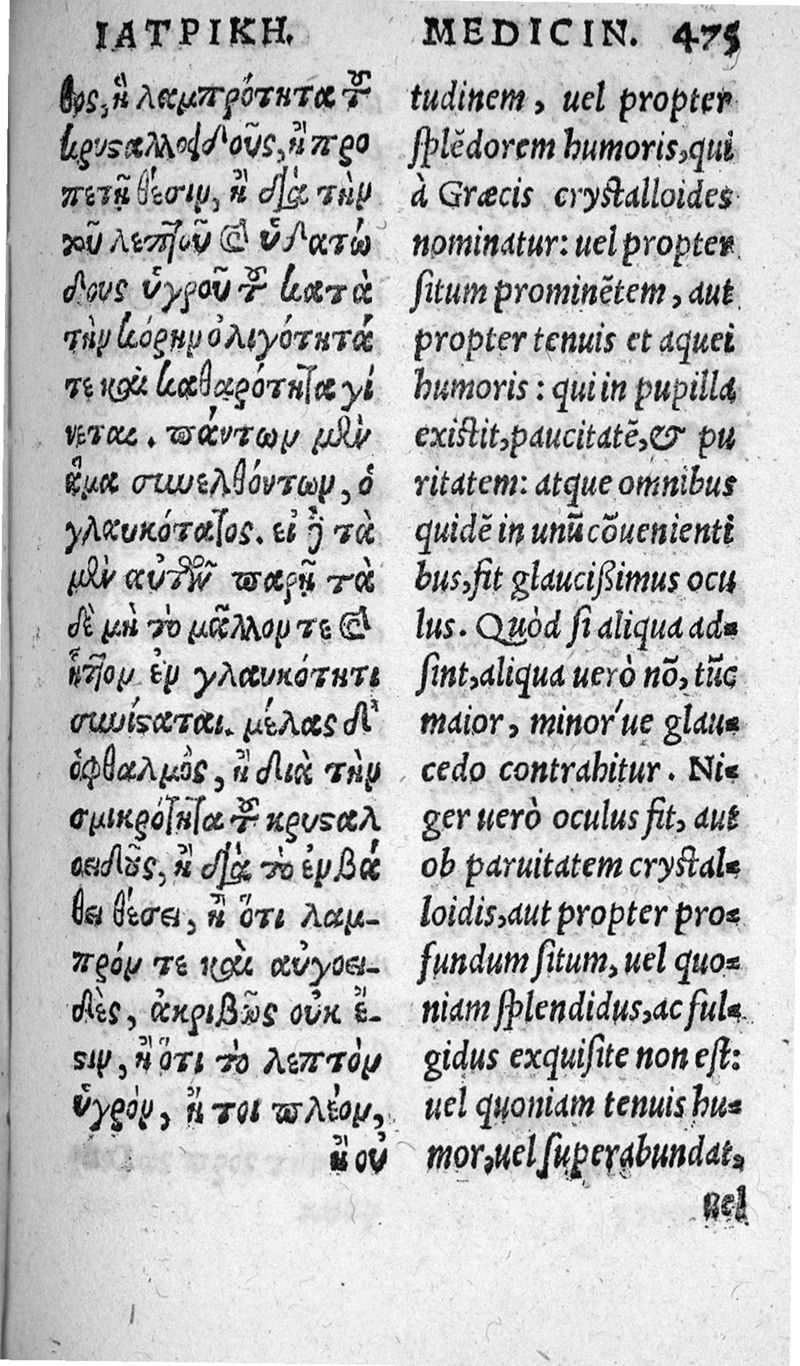 ΙΑΤΡΙΚΗ.
θος, ἢ λαμπρότητα τοῦ
κρυσαλλοειδοῦς, ἢ προ
πετῆ θέσιν, ἢ διὰ τὴν
τοῦ λεπτοῦ καὶ ὑδατώ
δους ὑγροῦ τοῦ κατὰ
τὴν κόρην ὀλιγότητά
τε καὶ καθαρότητα γί
νεται. πάντων μὲν
ἅμα συνελθόντων, ὁ
γλαυκότατος. εἰ δὲ τὰ
μὲν αὐτῶν παρῆ τὰ
δὲ μὴ τὸ μᾶλλον τε καὶ
ἧττον ἐν γλαυκότητι
συνίσταται. μέλας δ'
ὀφθαλμὸς, ἢ διὰ τὴν
σμικρότητα τοῦ κρυσταλ
οειδοῦς, ἢ διὰ τὸ ἐν βά
θει θέσει, ἢ ὅτι λαμ-
πρόν τε καὶ αὐγοει-
δὲς, ἀκριβῶς οὐκ ἔ-
στιν, ἢ ὅτι τὸ λεπτὸν
ὑγρὸν, ἤ τοι πλέον,
ἢ οὐ
MEDICIN. 475
tudinem, uel propter
splēdorem humoris, qui
à Græcis crystalloides
nominatur: uel propter
situm prominētem, aut
propter tenuis et aquei
humoris: qui in pupilla
existit, paucitatē, & pu
ritatem: atque omnibus
quidē in unū cōuenienti
bus, fit glaucißimus ocu
lus. Quòd si aliqua ad-
sint, aliqua uerò nō, tūc
maior, minor'ue glau-
cedo contrahitur. Ni-
ger uerò oculus fit, aut
ob paruitatem crystal-
loidis, aut propter pro-
fundum situm, uel quo-
niam splendidus, ac ful-
gidus exquisite non est:
uel quoniam tenuis hu-
mor, uel superabundat,
uel